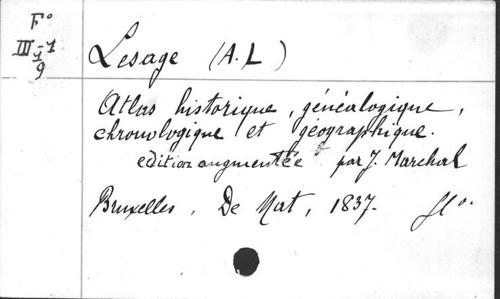 Fo
III-1
1
9
Lesage (A.L)
Atlas historique, généalogique,
chronologique et géographique.
edition augmentée par J. Marchal
Bruxelles, De Mat, 1837.